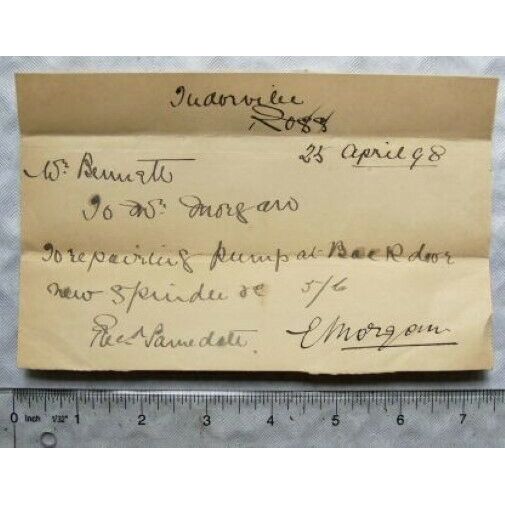 Tudorville
Ross
25 April 98
Mr. Bennett
To Mr. Morgan
To repairing pump at Back door
new Spindle &c 5/6
Recd. Same date. E Morgan
0 Inch 1/32" 1 2 3 4 5 6 7